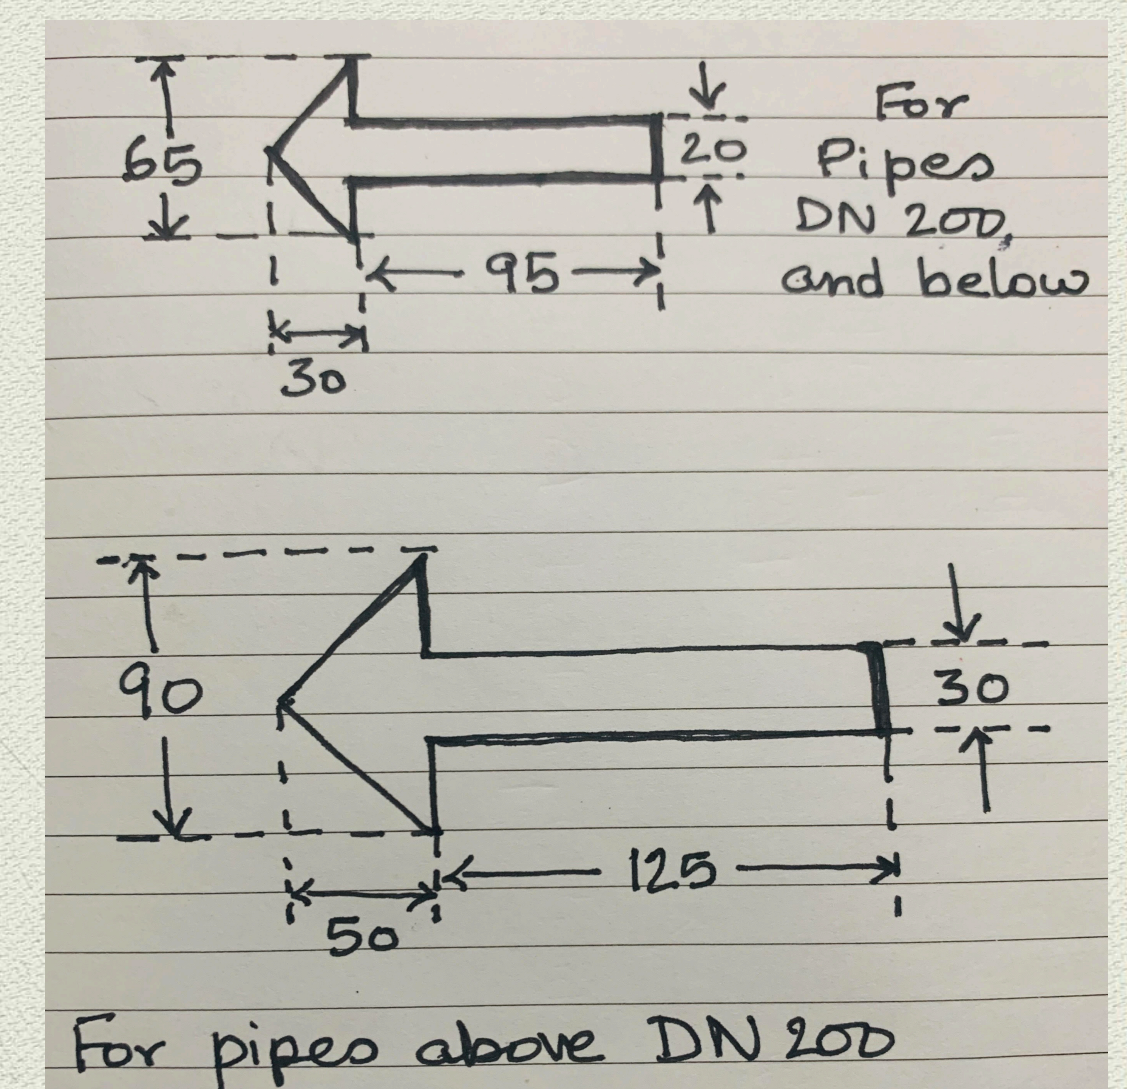 65
20
95
30
For
Pipes
DN 200,
and below
90
30
125
50
For pipes above DN 200